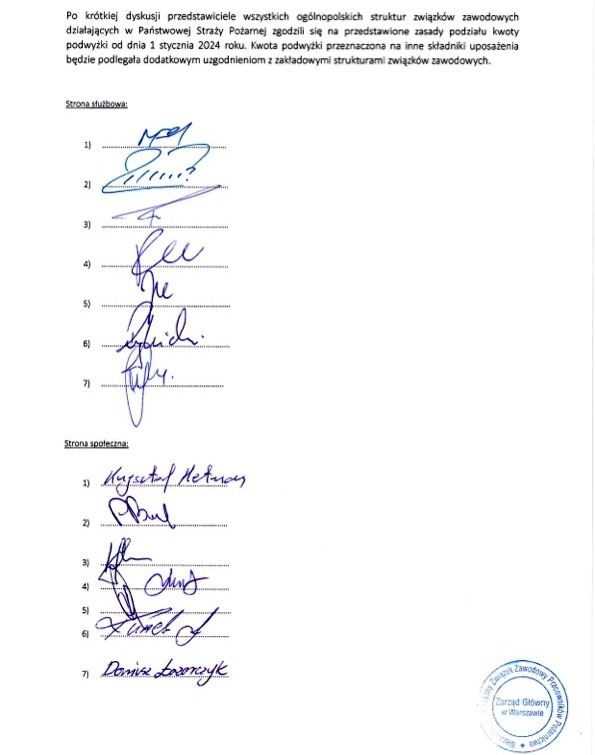 Po krótkiej dyskusji przedstawiciele wszystkich ogólnopolskich struktur związków zawodowych
działających w Państwowej Straży Pożarnej zgodzili się na przedstawione zasady podziału kwoty
podwyżki od dnia 1 stycznia 2024 roku. Kwota podwyżki przeznaczona na inne składniki uposażenia
będzie podlegała dodatkowym uzgodnieniom z zakładowymi strukturami związków zawodowych.
Strona służbowa:
1)
2)
3)
4)
5)
6)
7)
Strona społeczna:
1) Krzysztof
2)
3)
4)
5)
6)
7) Dariusz
Związek Zawodowy Pracowników Pożarnictwa
Zarząd Główny
w Warszawie